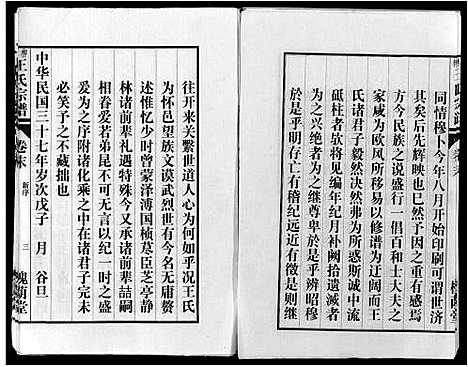 同情穆卜今年八月开始印刷可谓世济
其矣后先辉映也已然予因之重有感焉
方今民族之说盛行一倡百和士大夫之
家咸为欧风所移易以修谱为迂阔而王
氏诸君子独不为所惑斯诚中流
砥柱者欤将见编年纪月补阙拾遗前人
为之兴绝者为之继尊卑於是乎辨昭穆
於是乎明存亡有稽纪远近有徵是则有
往开来关繫世道人心为何如乎况王氏
为怀邑望族文谟武烈世有名无庸赘
述惟忆少时曾蒙泽溥国桢莫臣芝亭静
林诸前辈礼遇特殊今又承前辈喆嗣
相眷爱若弟昆不可无言以纪一时之盛
爰为之序附诸化乘之中在诸君子完未
必笑予之不藏拙也
中华民国三十七年岁次戊子 月 谷旦
王氏宗谱
卷末
新序
三
槐荫堂